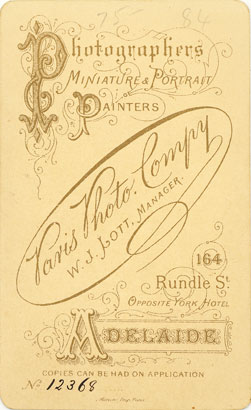 75 84
Photographers
MINIATURE & PORTRAIT
PAINTERS
Paris Photo. Compy
W. J. LOTT. MANAGER.
164
Rundle St.
OPPOSITE YORK HOTEL
ADELAIDE
COPIES CAN BE HAD ON APPLICATION
No 12368